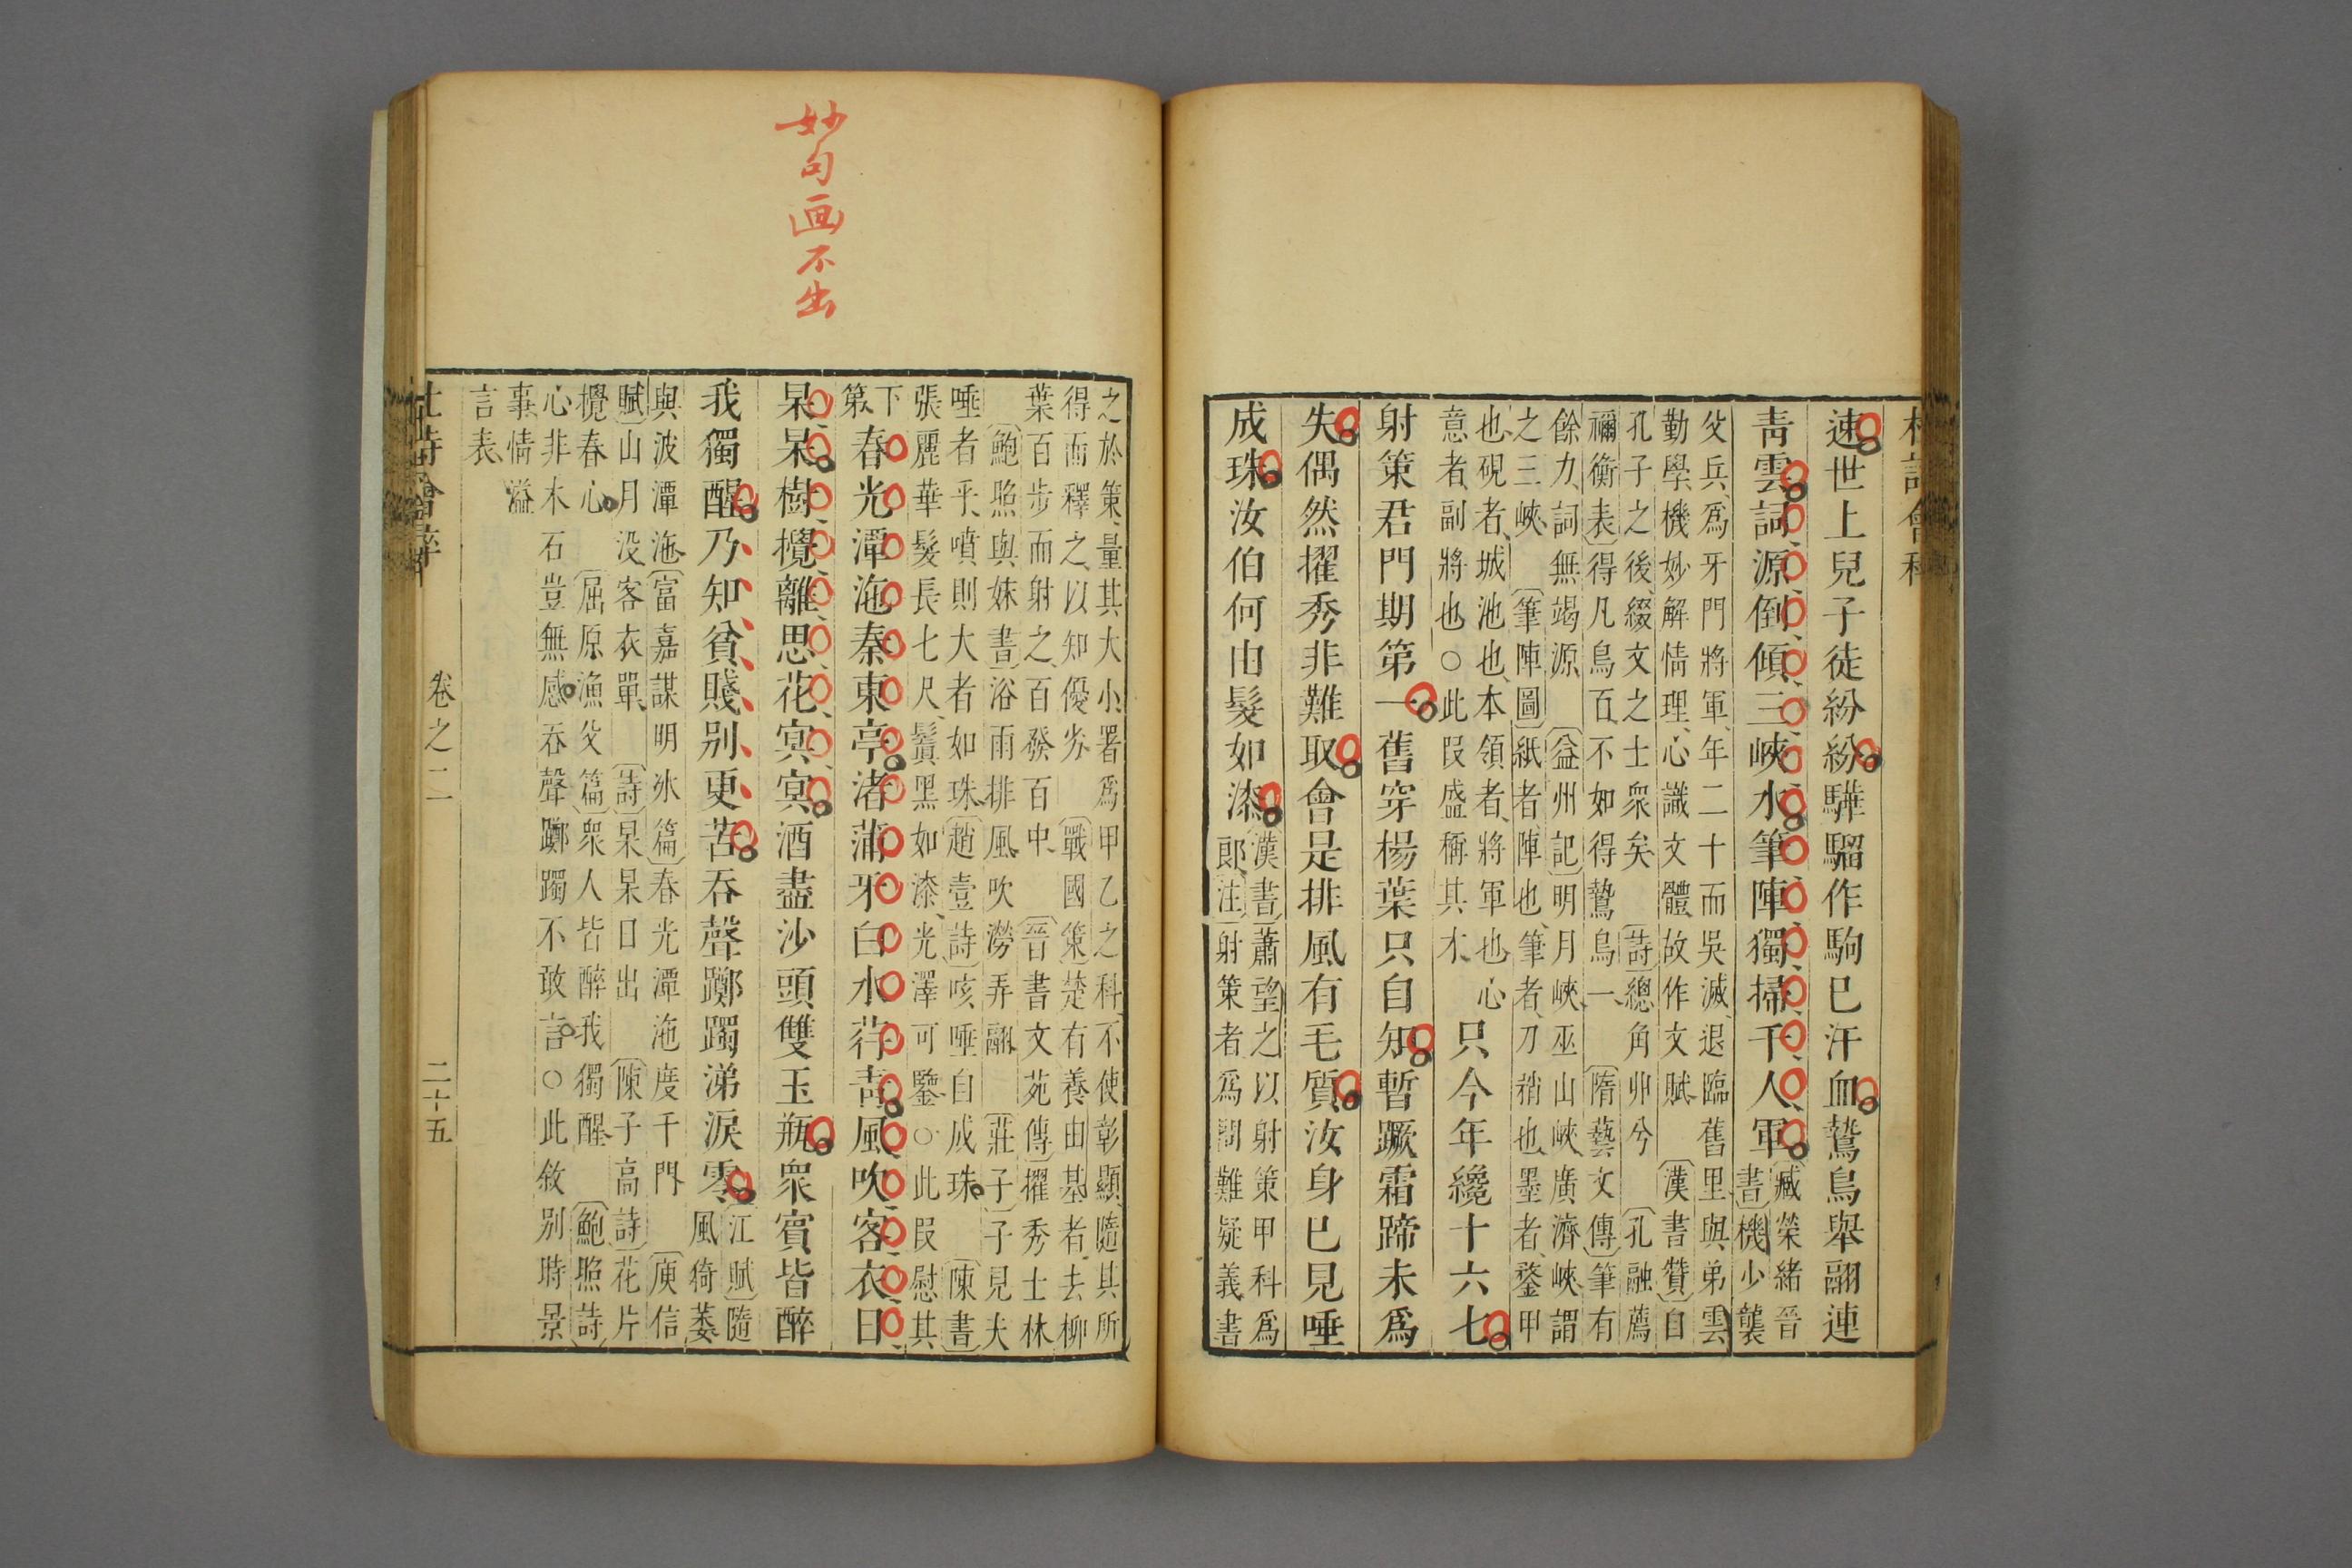 速世上兒子徒紛紛驊騮作駒已汗血鷙鳥舉翮連
青雲詞源倒傾三峽水筆陣獨掃千人軍
〔臧榮緒晉
書〕機少襲
父兵爲牙門將軍、年二十而吳滅、退臨舊里、與弟雲
勤學、機妙解情理、心識文體、故作文賦 〔漢書贊〕自
孔子之後、綴文之士衆矣 〔詩〕總角丱兮 〔孔融薦
禰衡表〕得凡鳥百、不如得鷙鳥一、 〔隋藝文傳〕筆有
餘力、詞無竭源、 〔益州記〕明月峽、巫山峽、廣濟峽、謂
之三峽、 〔筆陣圖〕紙者陣也、筆者、刀矟也、墨者、鍪甲
也、硯者、城池也、本領者、將軍也、心
意者、副將也○此叚盛稱其才
只今年纔十六七
射策君門期第一舊穿楊葉只自知暫蹶霜蹄未爲
失偶然擢秀非難取會是排風有毛質汝身已見唾
成珠汝伯何由髮如漆
〔漢書〕蕭望之以射策甲科爲
郎〔注〕射策者爲問難疑義書
妙句画不出
之於策、量其大小、署爲甲乙之科、不使彰顯、隨其所
得而釋之、以知優劣、 〔戰國策〕楚有養由基者、去柳
葉百步而射之、百發百中、 〔晉書文苑傳〕擢秀士林
〔鮑照與妹書〕浴雨排風、吹澇弄翮、 〔莊子〕子見夫
唾者乎、噴則大者如珠、〔趙壹詩〕咳唾自成珠 〔陳書〕
張麗華髮長七尺、鬒黑如漆、光澤可鑒、○此叚慰其
下
第、
春光潭沲秦東亭渚蒲牙白水荇靑風吹客衣日
杲杲樹攪離思花冥冥酒盡沙頭雙玉瓶衆賓皆醉
我獨醒乃知貧賤别更苦吞聲躑躅涕淚零
〔江賦〕隨
風猗萎
與波潭沲、〔富嘉謀明冰篇〕春光潭沲度千門、 〔庾信
賦〕山月没、客衣單、 〔詩〕杲杲日出 〔陳子高詩〕花片
攪春心 〔屈原漁父篇〕衆人皆醉我獨醒、 〔鮑照詩〕
心非木石豈無感吞聲躑躅不敢言○此敘别時景
事、情溢
言表、
卷之二
二十五